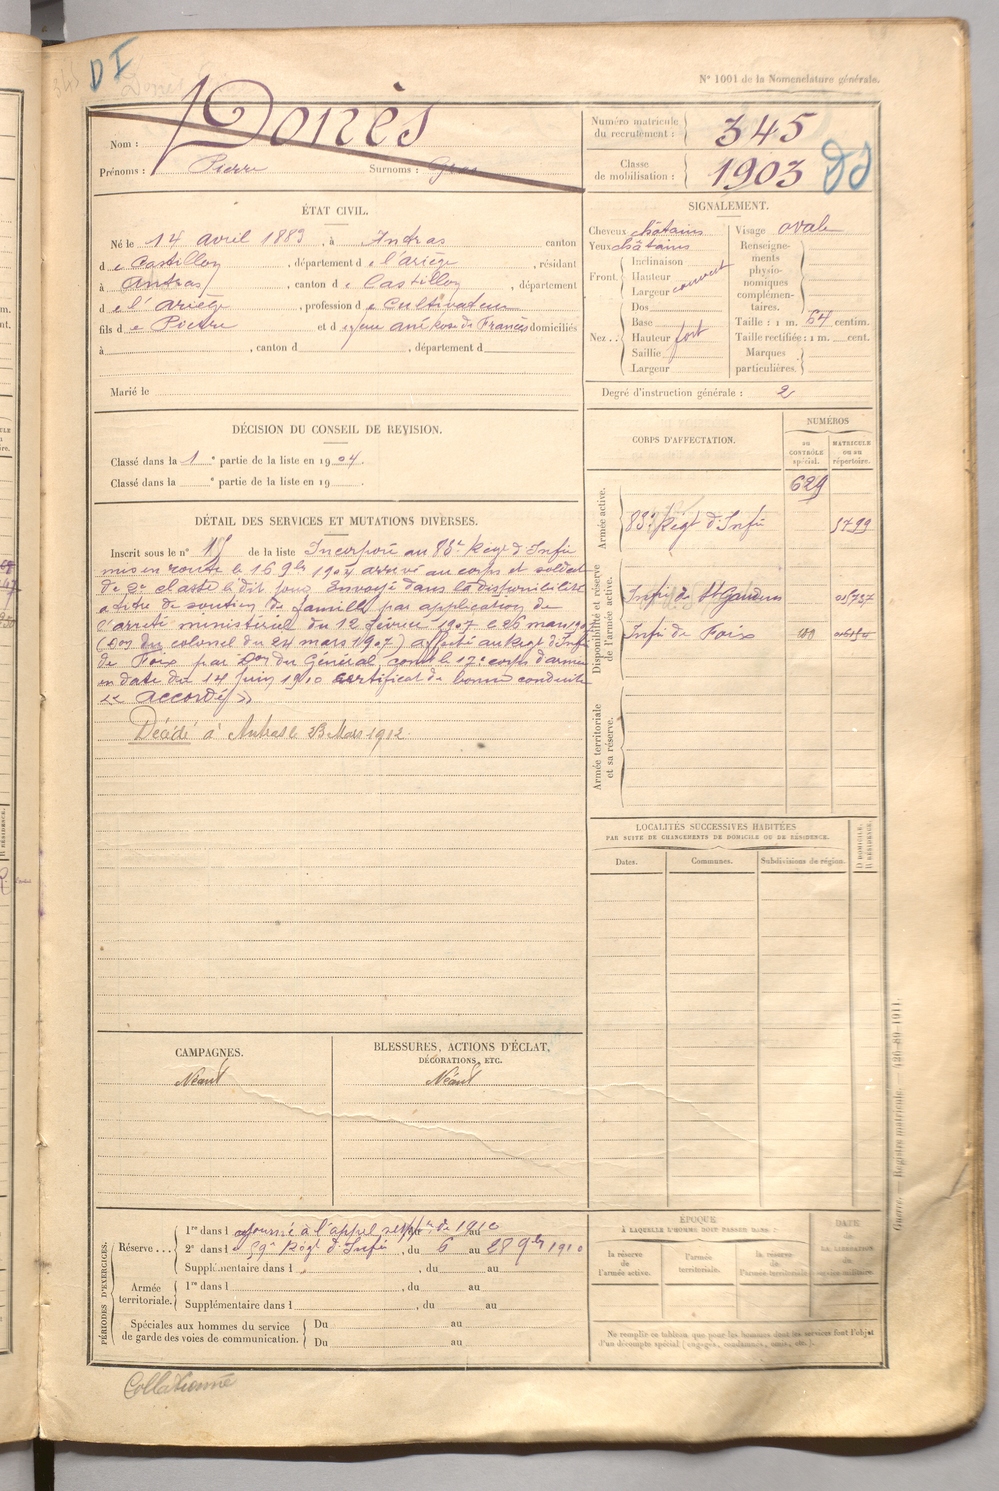 DI
345
N° 1001 de la Nomenclature générale.
Nom : Donès
Prénoms : Pierre Surnoms : Gros
Numéro matricule du recrutement : 345
Classe de mobilisation : 1903
ÉTAT CIVIL.
Né le 14 avril 1883, à Antras canton
de Castillon, département de l'Ariège, résidant
à Antras, canton de Castillon, département
de l'Ariège, profession de Cultivateur
fils de Pierre et de Rose de Francès domiciliés
à , canton d , département d
Marié le
SIGNALEMENT.
Cheveux châtains Visage ovale
Yeux châtains Renseignements physionomiques complémentaires.
Front. Inclinaison
Hauteur couvert
Largeur
Nez.. Dos
Base
Hauteur fort
Saillie
Largeur
Taille : 1 m. 64 centim.
Taille rectifiée : 1 m. cent.
Marques particulières.
Degré d'instruction générale : 2
DÉCISION DU CONSEIL DE REVISION.
Classé dans la 1e partie de la liste en 1904.
Classé dans la e partie de la liste en 19 .
DÉTAIL DES SERVICES ET MUTATIONS DIVERSES.
Inscrit sous le n° 15 de la liste Incorporé au 83e Régt d'Infie
mis en route le 16 9bre 1904 arrivé au corps et soldat
de 2e classe le dit jour Envoyé dans la disponibilité
a titre de soutien de famille par application de
l'arrêté ministériel du 12 février 1907 le 26 mars 190
(Don du colonel du 24 mars 1907) affecté au Régt d'Infie
de Foix par Don du Général comt le 17e corps d'armée
en date du 14 juin 1910 certificat de bonne conduite
"Accordé"
Décédé à Antras le 23 Mars 1912
CORPS D'AFFECTATION.
NUMÉROS
au CONTRÔLE spécial.
MATRICULE ou au répertoire.
Armée active.
629
83e Régt d'Infie 5799
Disponibilité et réserve de l'armée active.
Infie de St Gaudens
Infie de Foix
Armée territoriale et sa réserve.
LOCALITÉS SUCCESSIVES HABITÉES
PAR SUITE DE CHANGEMENTS DE DOMICILE OU DE RÉSIDENCE.
Dates. Communes. Subdivisions de région. D DOMICILE. R RÉSIDENCE.
CAMPAGNES.
Néant
BLESSURES, ACTIONS D'ÉCLAT,
DÉCORATIONS, ETC.
Néant
PÉRIODES D'EXERCICES.
Réserve... 1re dans l ajourné à l'appel de 1910
2e dans l e 59e Régt d'Infie, du 6 au 28 9bre 1910
Supplémentaire dans l , du au
Armée territoriale. 1re dans l , du au
Supplémentaire dans l , du au
Spéciales aux hommes du service de garde des voies de communication. Du au
Du au
ÉPOQUE
À LAQUELLE L'HOMME DOIT PASSER DANS :
la réserve de l'armée active.
l'armée territoriale.
la réserve de l'armée territoriale.
DATE DE LA LIBÉRATION du service militaire.
Ne remplir ce tableau que pour les hommes dont les services font l'objet
d'un décompte spécial (engagés, condamnés, omis, etc.).
Guerre. — Registre matricule. — 420-89-1911.
Collationné